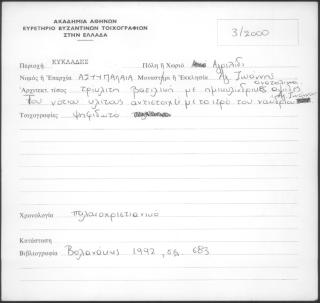 ΑΚΑΔΗΜΙΑ ΑΘΗΝΩΝ
ΕΥΡΕΤΗΡΙΟ ΒΥΖΑΝΤΙΝΩΝ ΤΟΙΧΟΓΡΑΦΙΩΝ
ΣΤΗΝ ΕΛΛΑΔΑ
3/2000
Περιοχή ΚΥΚΛΑΔΕΣ Πόλη ή Χωριό Αγριλίδι
Νομός ή Έπαρχία ΑΣΤΥΠΑΛΑΙΑ Μοναστήρι ή Έκκλησία Αγ. Ιωάννης
Άρχιτεκτ. τύπος τρίκλιτη βασιλική με ημικυλινδρικές αψίδες
ανατολικά
Του νότιου κλίτους αντιστοιχεί με το ιερό του ναυδρίου
Αγ. Ιωάννου
Τοιχογραφίες ψηφιδωτό
Χρονολογία παλαιοχριστιανικό
Κατάσταση
Βιβλιογραφία Βολανάκης 1992, σελ. 683